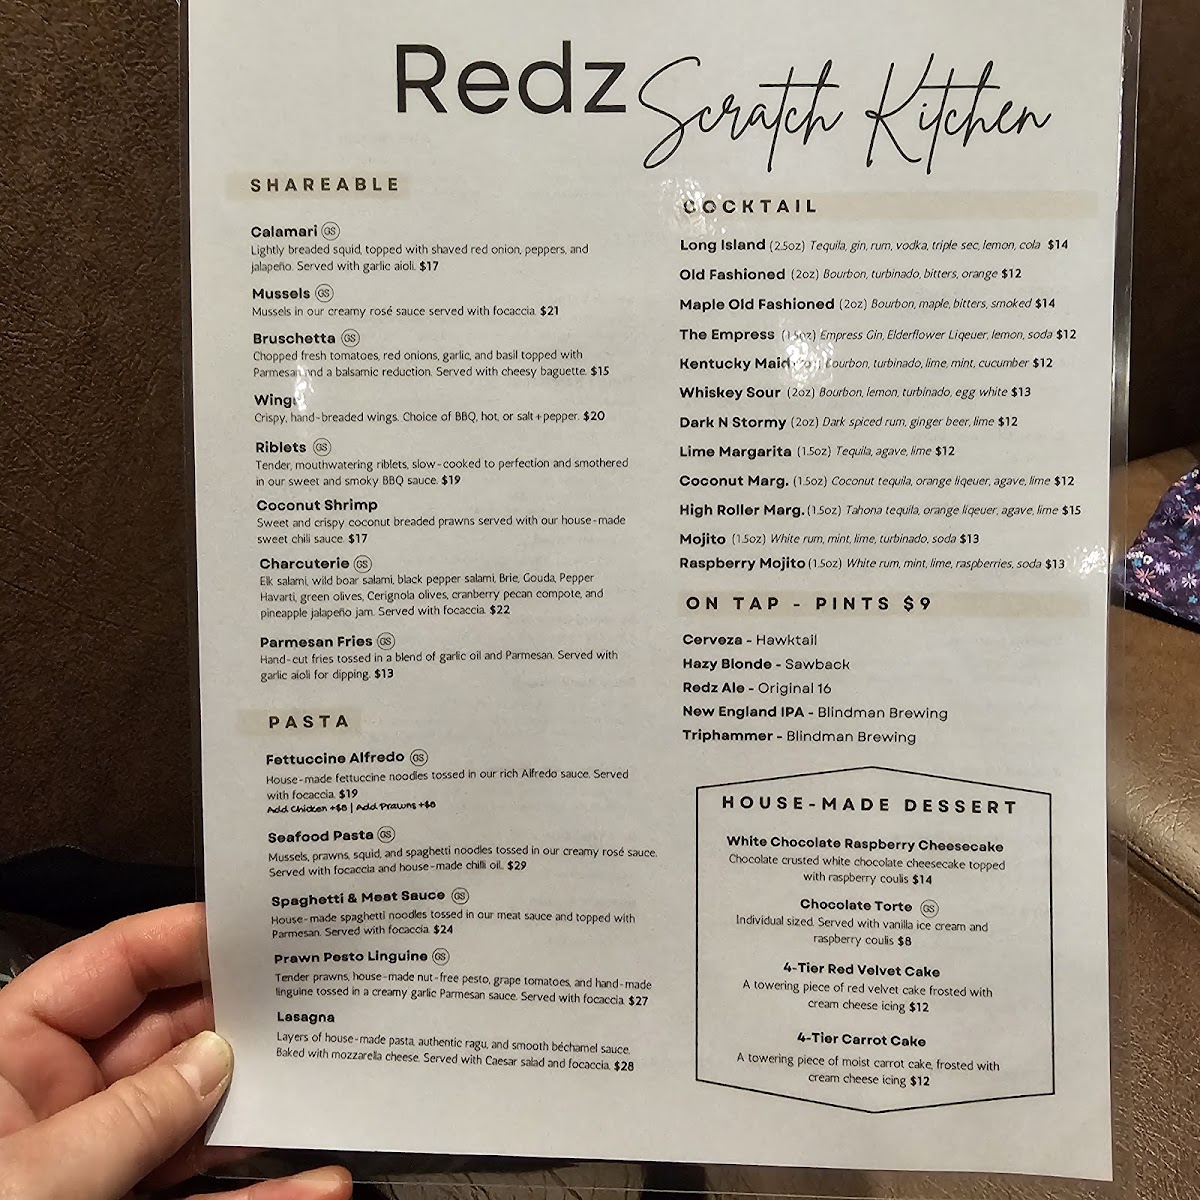 Redz Scratch Kitchen
SHAREABLE
Calamari GS
Lightly breaded squid, topped with shaved red onion, peppers, and
jalapeño. Served with garlic aioli. $17
Mussels GS
Mussels in our creamy rosé sauce served with focaccia. $21
Bruschetta GS
Chopped fresh tomatoes, red onions, garlic, and basil topped with
Parmesan and a balsamic reduction. Served with cheesy baguette. $15
Wings
Crispy, hand-breaded wings. Choice of BBQ, hot, or salt+pepper. $20
Riblets GS
Tender, mouthwatering riblets, slow-cooked to perfection and smothered
in our sweet and smoky BBQ sauce. $19
Coconut Shrimp
Sweet and crispy coconut breaded prawns served with our house-made
sweet chili sauce. $17
Charcuterie GS
Elk salami, wild boar salami, black pepper salami, Brie, Gouda, Pepper
Havarti, green olives, Cerignola olives, cranberry pecan compote, and
pineapple jalapeño jam. Served with focaccia. $22
Parmesan Fries GS
Hand-cut fries tossed in a blend of garlic oil and Parmesan. Served with
garlic aioli for dipping. $13
PASTA
Fettuccine Alfredo GS
House-made fettuccine noodles tossed in our rich Alfredo sauce. Served
with focaccia. $19
Add Chicken +$8 | Add Prawns +$8
Seafood Pasta GS
Mussels, prawns, squid, and spaghetti noodles tossed in our creamy rosé sauce.
Served with focaccia and house-made chilli oil. $29
Spaghetti & Meat Sauce GS
House-made spaghetti noodles tossed in our meat sauce and topped with
Parmesan. Served with focaccia. $24
Prawn Pesto Linguine GS
Tender prawns, house-made nut-free pesto, grape tomatoes, and hand-made
linguine tossed in a creamy garlic Parmesan sauce. Served with focaccia. $27
Lasagna
Layers of house-made pasta, authentic ragu, and smooth béchamel sauce.
Baked with mozzarella cheese. Served with Caesar salad and focaccia. $28
COCKTAIL
Long Island (2.5oz) Tequila, gin, rum, vodka, triple sec, lemon, cola $14
Old Fashioned (2oz) Bourbon, turbinado, bitters, orange $12
Maple Old Fashioned (2oz) Bourbon, maple, bitters, smoked $14
The Empress (1.5oz) Empress Gin, Elderflower Liqeuer, lemon, soda $12
Kentucky Maid Bourbon, turbinado, lime, mint, cucumber $12
Whiskey Sour (2oz) Bourbon, lemon, turbinado, egg white $13
Dark N Stormy (2oz) Dark spiced rum, ginger beer, lime $12
Lime Margarita (1.5oz) Tequila, agave, lime $12
Coconut Marg. (1.5oz) Coconut tequila, orange liqeuer, agave, lime $12
High Roller Marg. (1.5oz) Tahona tequila, orange liqeuer, agave, lime $15
Mojito (1.5oz) White rum, mint, lime, turbinado, soda $13
Raspberry Mojito (1.5oz) White rum, mint, lime, raspberries, soda $13
ON TAP - PINTS $9
Cerveza - Hawktail
Hazy Blonde - Sawback
Redz Ale - Original 16
New England IPA - Blindman Brewing
Triphammer - Blindman Brewing
HOUSE-MADE DESSERT
White Chocolate Raspberry Cheesecake
Chocolate crusted white chocolate cheesecake topped
with raspberry coulis $14
Chocolate Torte GS
Individual sized. Served with vanilla ice cream and
raspberry coulis $8
4-Tier Red Velvet Cake
A towering piece of red velvet cake frosted with
cream cheese icing $12
4-Tier Carrot Cake
A towering piece of moist carrot cake, frosted with
cream cheese icing $12